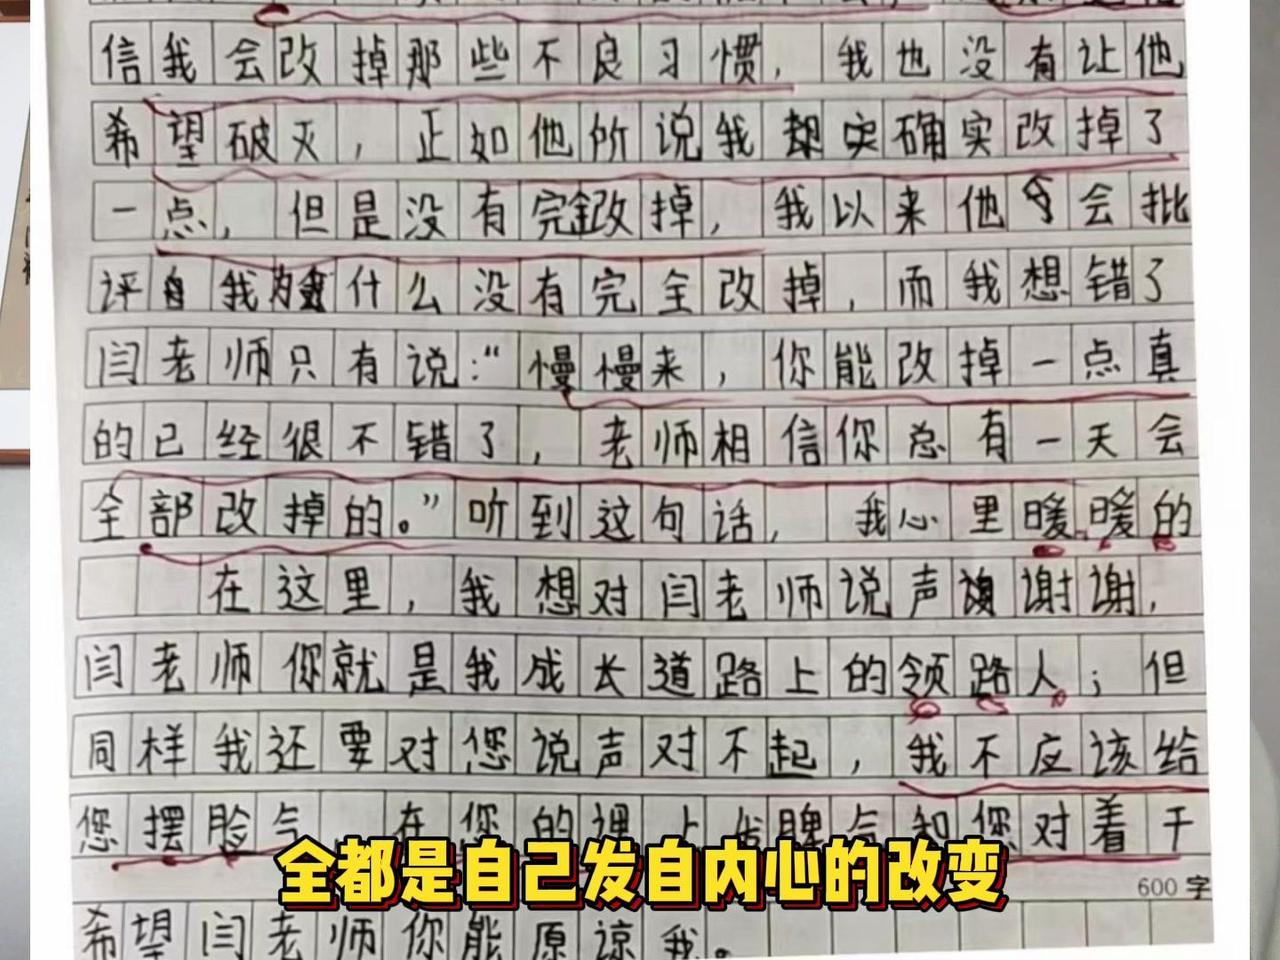 信我会改掉那些不良习惯，我也没有让他
希望破灭，正如他所说我却实确实改掉了
一点，但是没有完全改掉，我以来他会批
评自我为什么没有完全改掉，而我想错了
闫老师只有说：“慢慢来，你能改掉一点真
的已经很不错了，老师相信你总有一天会
全部改掉的。”听到这句话，我心里暖暖的
在这里，我想对闫老师说声谢谢，
闫老师你就是我成长道路上的领路人；但
同样我还要对您说声对不起，我不应该给
您摆脸气 在您的课上发脾气和您对着干
全都是自己发自内心的改变
600字
希望闫老师你能原谅我。